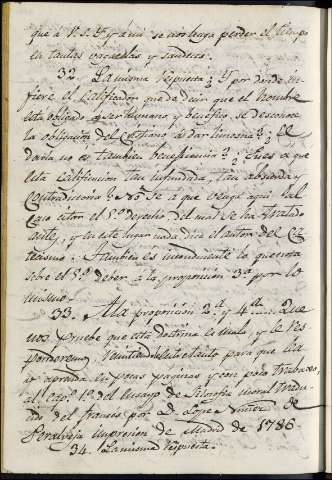 que à V.S. Y. y a mi se nos haga perder el tiempo
en tantas vagatelas y sandeces.
32. La misma respuesta; Y por donde in-
fiere el Calificador que decir que el hombre
está obligado a ser humano, y benefico se desconoce
la obligacion del Cristiano à dar limosna? ¿El
darla no es tambien beneficencia? ¿Pues a que
esta Calificacion tan infundada, tan absurda y
Contradictoria? No se a que venga aqui tal
Caso citar el 5º derecho del qual se ha tratado
ante, y en este lugar nada dice el autor del Ca-
tecismo. Tambien es inconducente lo que nota
sobre el 5º deber a la proposicion 3ª por lo
mismo.
33. A la proposicion 2ª y 4ª Que
nos pruebe que esta doctrina es mala, y le res-
ponderemos para que
lo aprenda en pocas paginas y con poco trabajo,
al Capº 1º del Ensayo de Filosofia moral tradu-
cido del frances por D. Lope Nuñez de
Peralveja impresion de Madrid de 1786.
34. La misma respuesta.